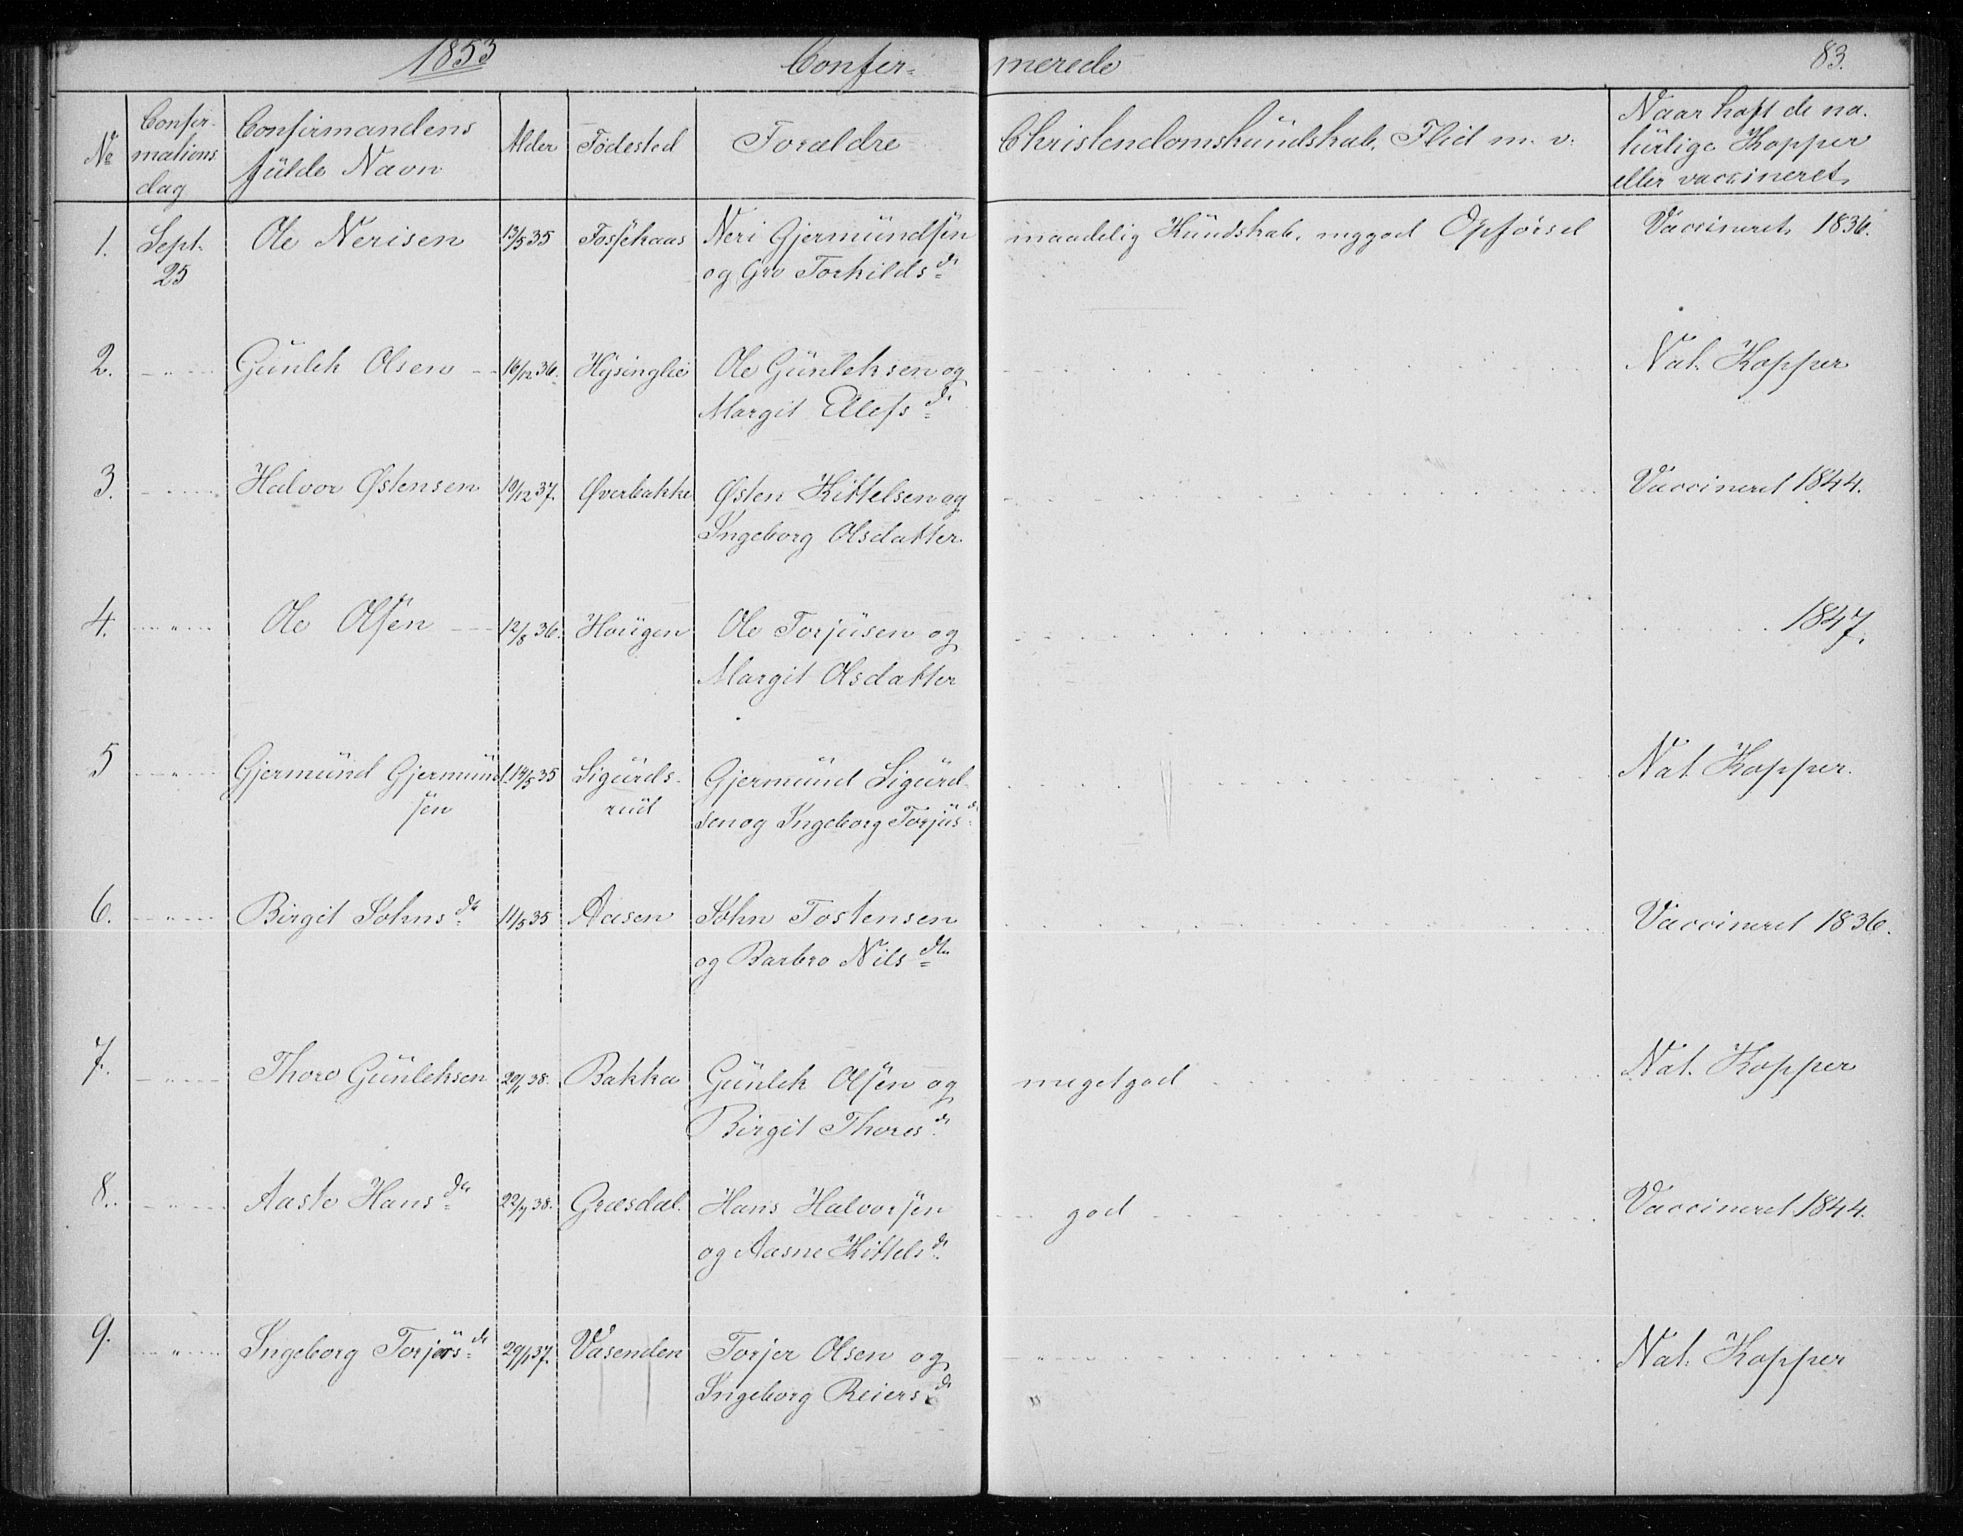 1853 Confirmerede 83.
No Confirmations dag Confirmandens fülde Navn Alder Födested Forældre Christendomskündskab, Flid m. v. Naar haft de natürlige Kopper eller vaccineret,
1. Sept. 25 Ole Nerisen 13/5 35 Neri Gjermündsen og Gro Torkildsdr maadelig Kündskab, mggod Opförsel Vaccineret, 1836.
2. – „ – Günlek Olsen 16/12 36. Ole Günleksen og Margit Olefsdr Nat. Kopper
3. – „ – Halvor Østensen 19/12 37. Øverbakke Østen Kittelsen og Ingeborg Olsdatter Vaccineret 1844.
4. – „ – Ole Olsen 12/8 36. Hoügen Ole Torjüsen og Margit Olsdatter 1847.
5 – „ – Gjermünd Gjermündsen 14/5 35 Sigürdsrüd Gjermünd Sigürdsen og Ingeborg Torjüsdr Nat. Kopper.
6. – „ – Birgit Johnsdr 11/5 35 Aasen John Tostensen og Barbro Nilsdtr Vaccineret 1836.
7. – „ – Thore Günleksen 20/1 38. Bakka Günlek Olsen og Birgit Thoresdr megetgod Nat. Kopper
8. – „ – Aaste Hansdr 22/7 38. Græsdal. Hans Halvorsen og Aasne Kittelsdr god Vaccineret 1844.
9. – „ – Ingeborg Torjersdr 29/1 37. Vasenden Torjer Olsen og Ingeborg Reiersdr – „ – Nat. Kopper